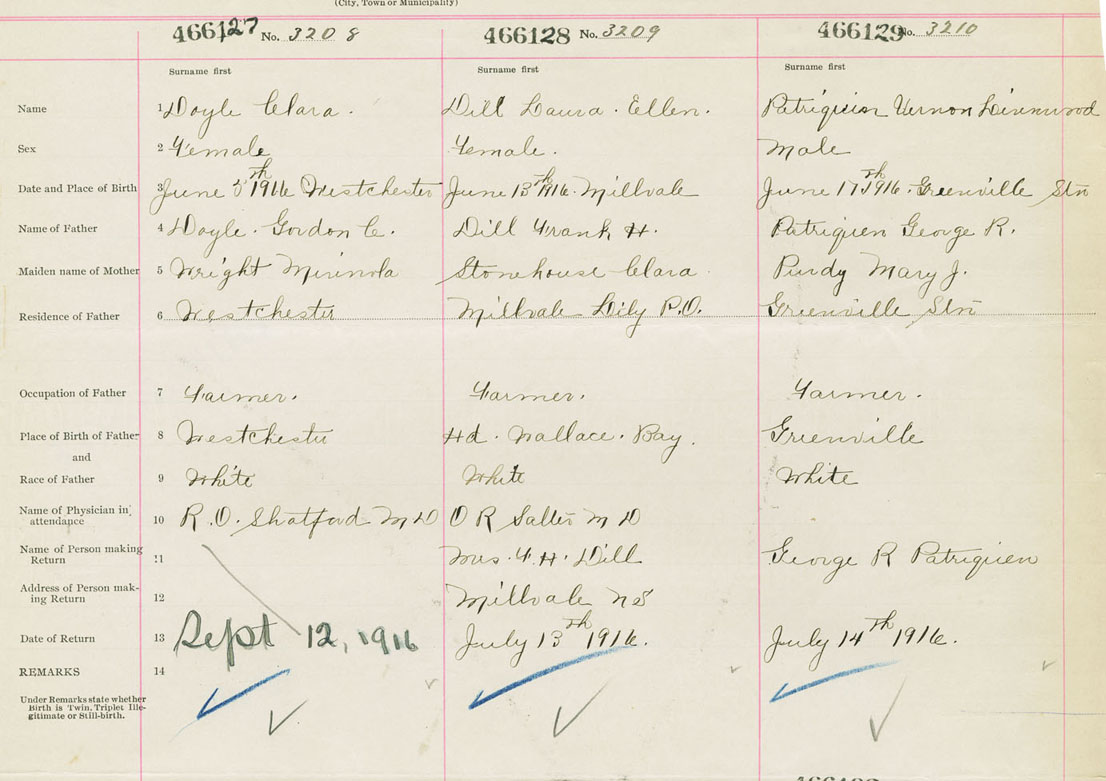 (City, Town or Municipality)
466127 No. 3208 466128 No. 3209 466129 No. 3210
Surname first Surname first Surname first
Name 1 Doyle Clara. Dill Laura. Ellen. Patriquin Vernon Linnwood
Sex 2 Female Female. Male
Date and Place of Birth 3 June 5th 1916 Westchester June 13th 1916. Millvale June 17th 1916. Greenville Stn
Name of Father 4 Doyle. Gordon C. Dill Frank H. Patriquen George R.
Maiden name of Mother 5 Wright Minnola Stonehouse Clara Purdy Mary J.
Residence of Father 6 Westchester Millvale Lily P.O. Greenville Stn
Occupation of Father 7 Farmer. Farmer. Farmer.
Place of Birth of Father 8 Westchester Hd. Wallace. Bay. Greenville
and
Race of Father 9 White White White
Name of Physician in attendance 10 R. O. Shatford M D O R Salter M D
Name of Person making Return 11 Mrs. F. H. Dill George R Patriquen
Address of Person mak-ing Return 12 Millvale N S
Date of Return 13 Sept 12, 1916 July 13th 1916. July 14th 1916.
REMARKS 14
Under Remarks state whether
Birth is Twin, Triplet Ille-
gitimate or Still-birth.